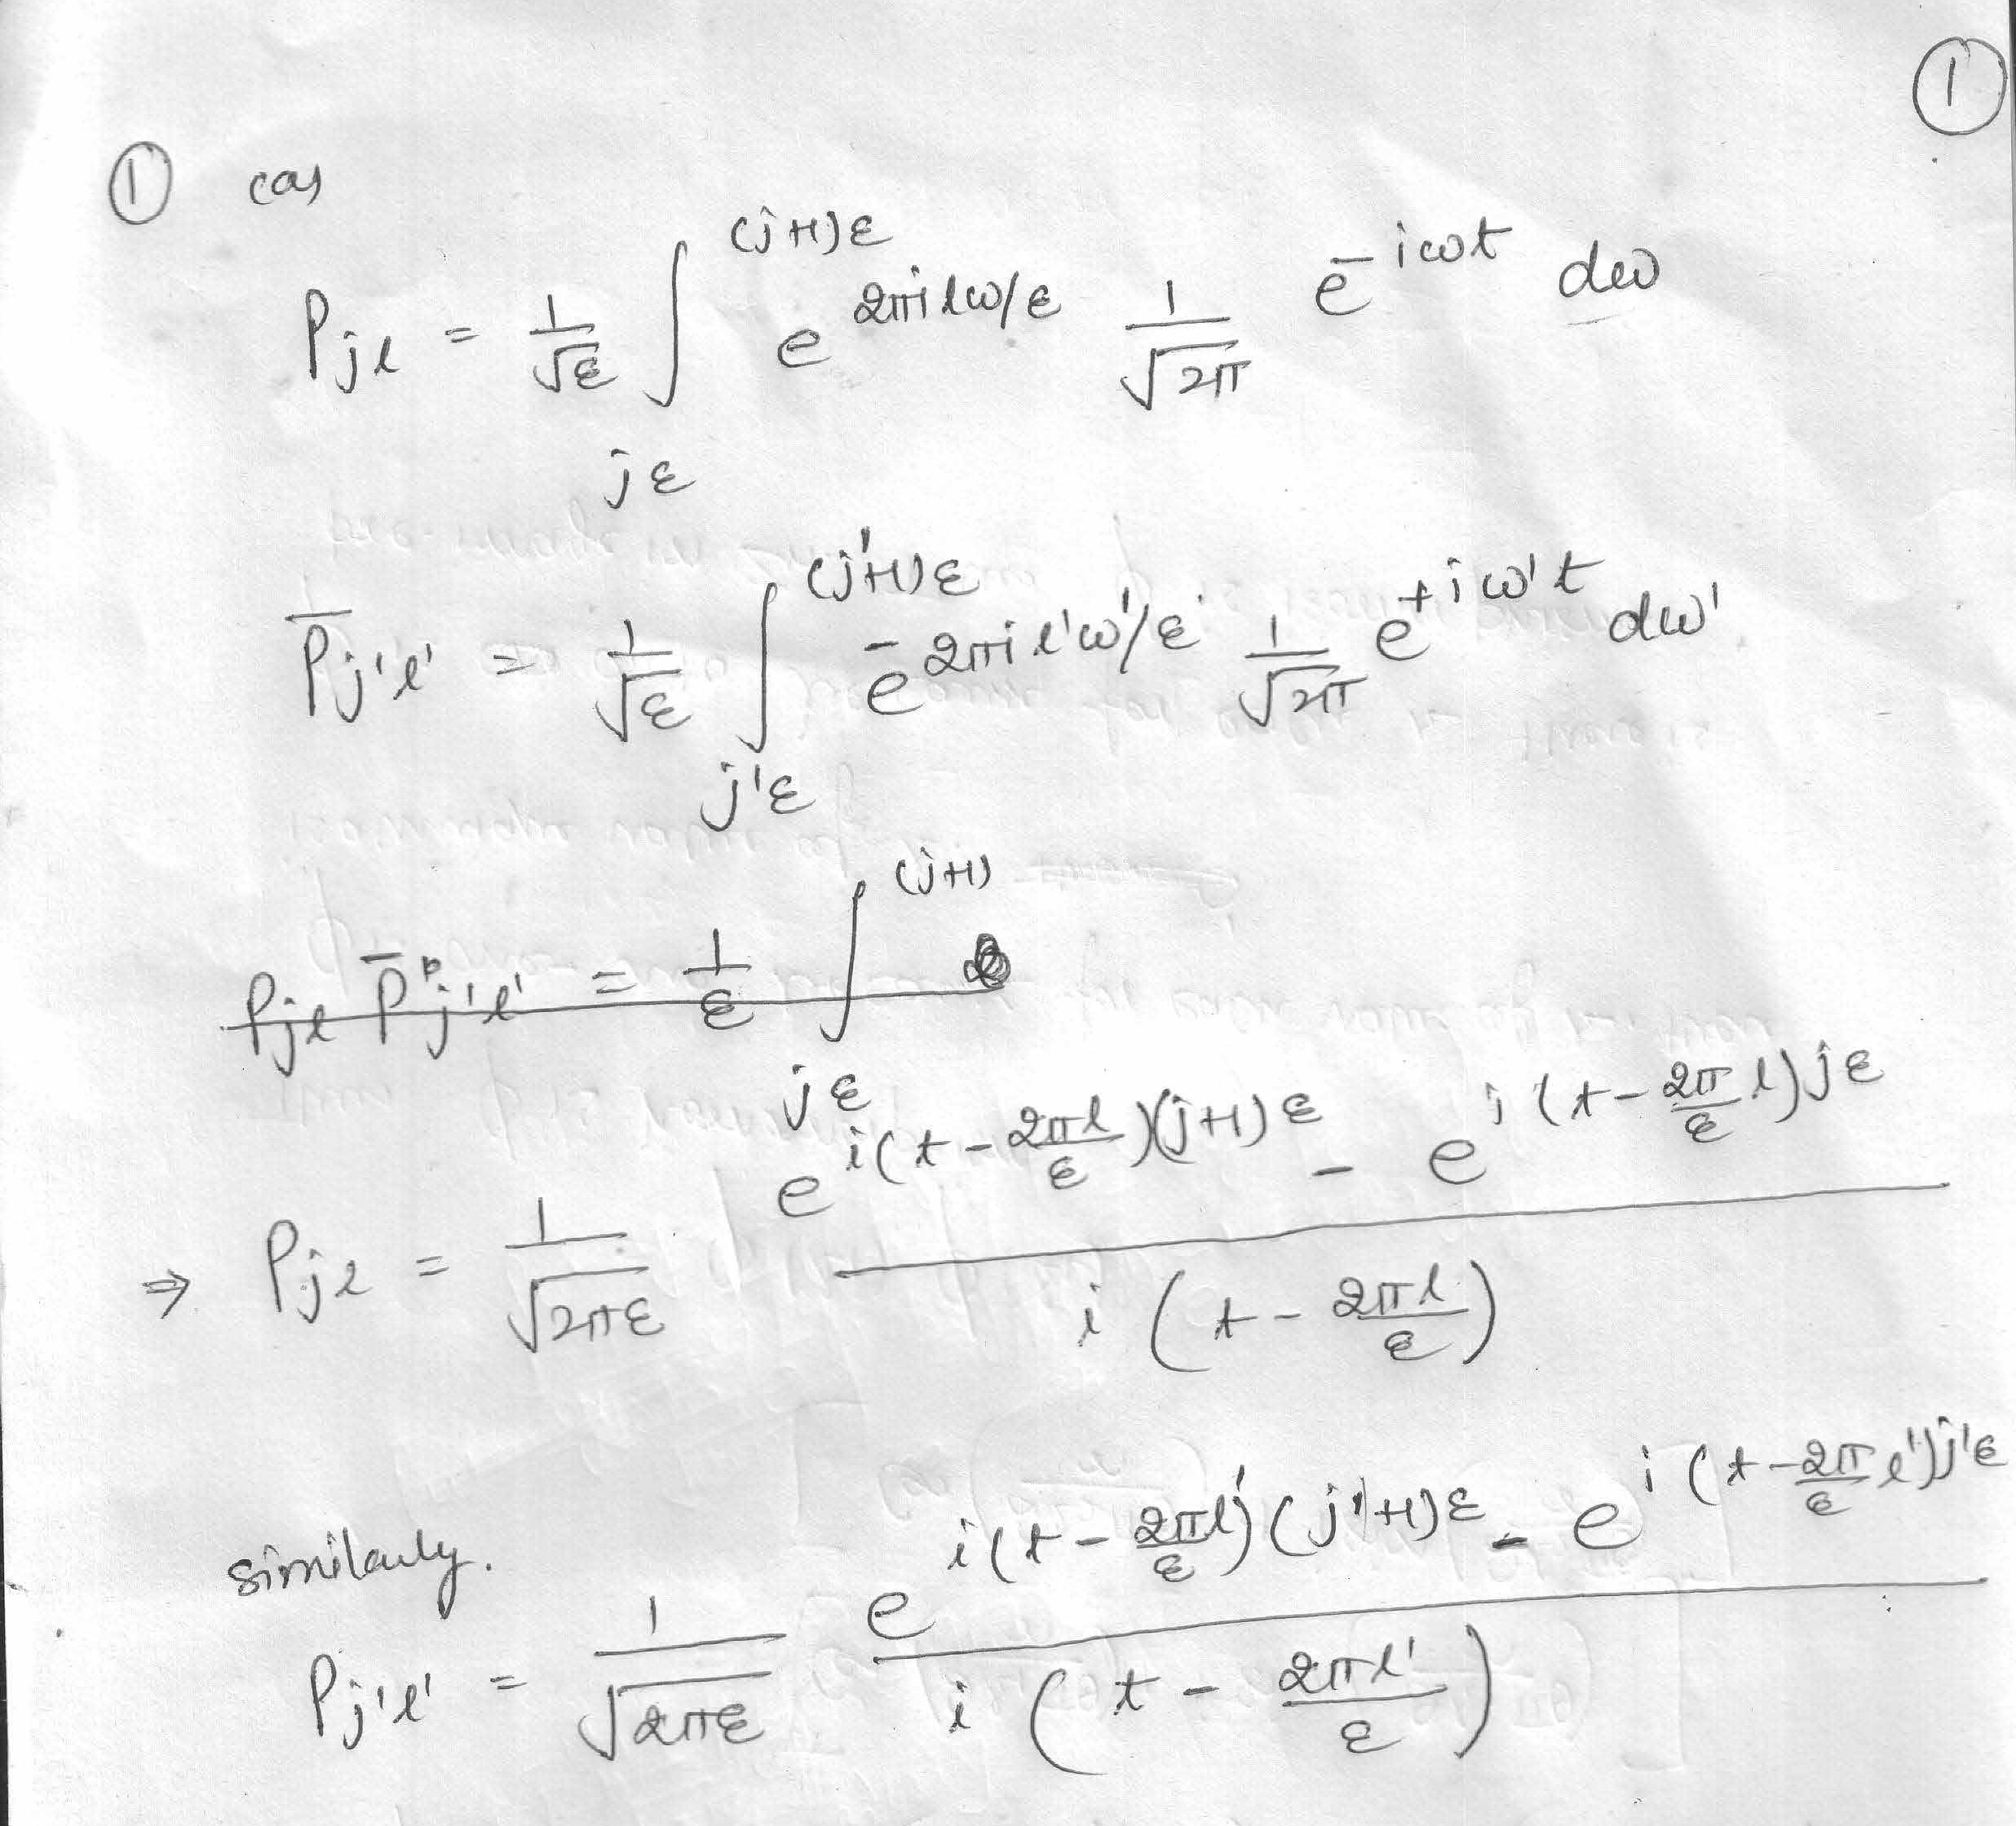 ①
① (a)
P_{jl} = \frac{1}{\sqrt{ε}} \int_{jε}^{(j+1)ε} e^{2πilω/ε} \frac{1}{\sqrt{2π}} e^{-iωt} dω
\bar{P}_{j'l'} = \frac{1}{\sqrt{ε}} \int_{j'ε}^{(j'+1)ε} e^{-2πil'ω'/ε} \frac{1}{\sqrt{2π}} e^{+iω't} dω'
P_{jl} \bar{P}_{j'l'} = \frac{1}{ε} \int_{jε}^{(j+1)}
⇒ P_{jl} = \frac{1}{\sqrt{2πε}} \frac{e^{i(t-\frac{2πl}{ε})(j+1)ε} - e^{i(t-\frac{2π}{ε}l)jε}}{i(t-\frac{2πl}{ε})}
similarly.
P_{j'l'} = \frac{1}{\sqrt{2πε}} \frac{e^{i(t-\frac{2πl'}{ε})(j'+1)ε} - e^{i(t-\frac{2π}{ε}l')j'ε}}{i(t-\frac{2πl'}{ε})}